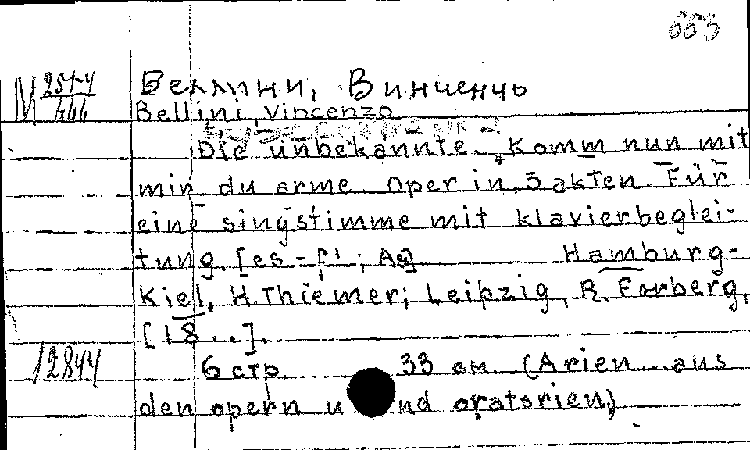 663
M 2514/466
Беллини, Винченчо
Bellini, Vincenzo
Die unbekannte. "Komm nun mit
mir du arme. Oper in 3 akten. Für
eine singstimme mit klavierbeglei-
tung. [es - ; As] Hamburg-
Kiel, H. Thiemer; Leipzig, R. Forberg,
[18..].
12844
6 стр. 33 см (Arien aus
den opern u nd oratorien)